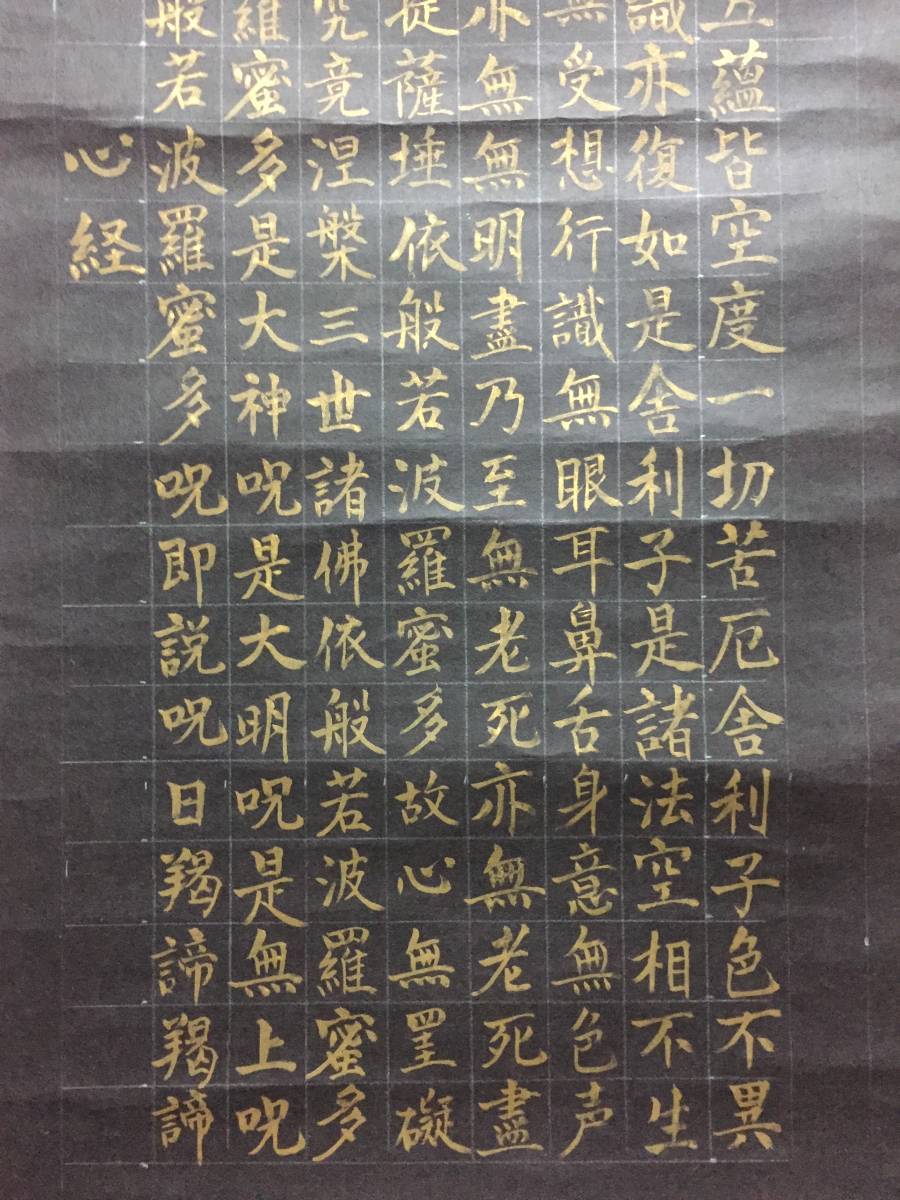 五蘊皆空度一切苦厄舎利子色不異
識亦復如是舎利子是諸法空相不生
無受想行識無眼耳鼻舌身意無色声
亦無無明盡乃至無老死亦無老死盡
提薩埵依般若波羅蜜多故心無罣礙
究竟涅槃三世諸佛依般若波羅蜜多
羅蜜多是大神呪是大明呪是無上呪
般若波羅蜜多呪即説呪曰羯諦羯諦
心経